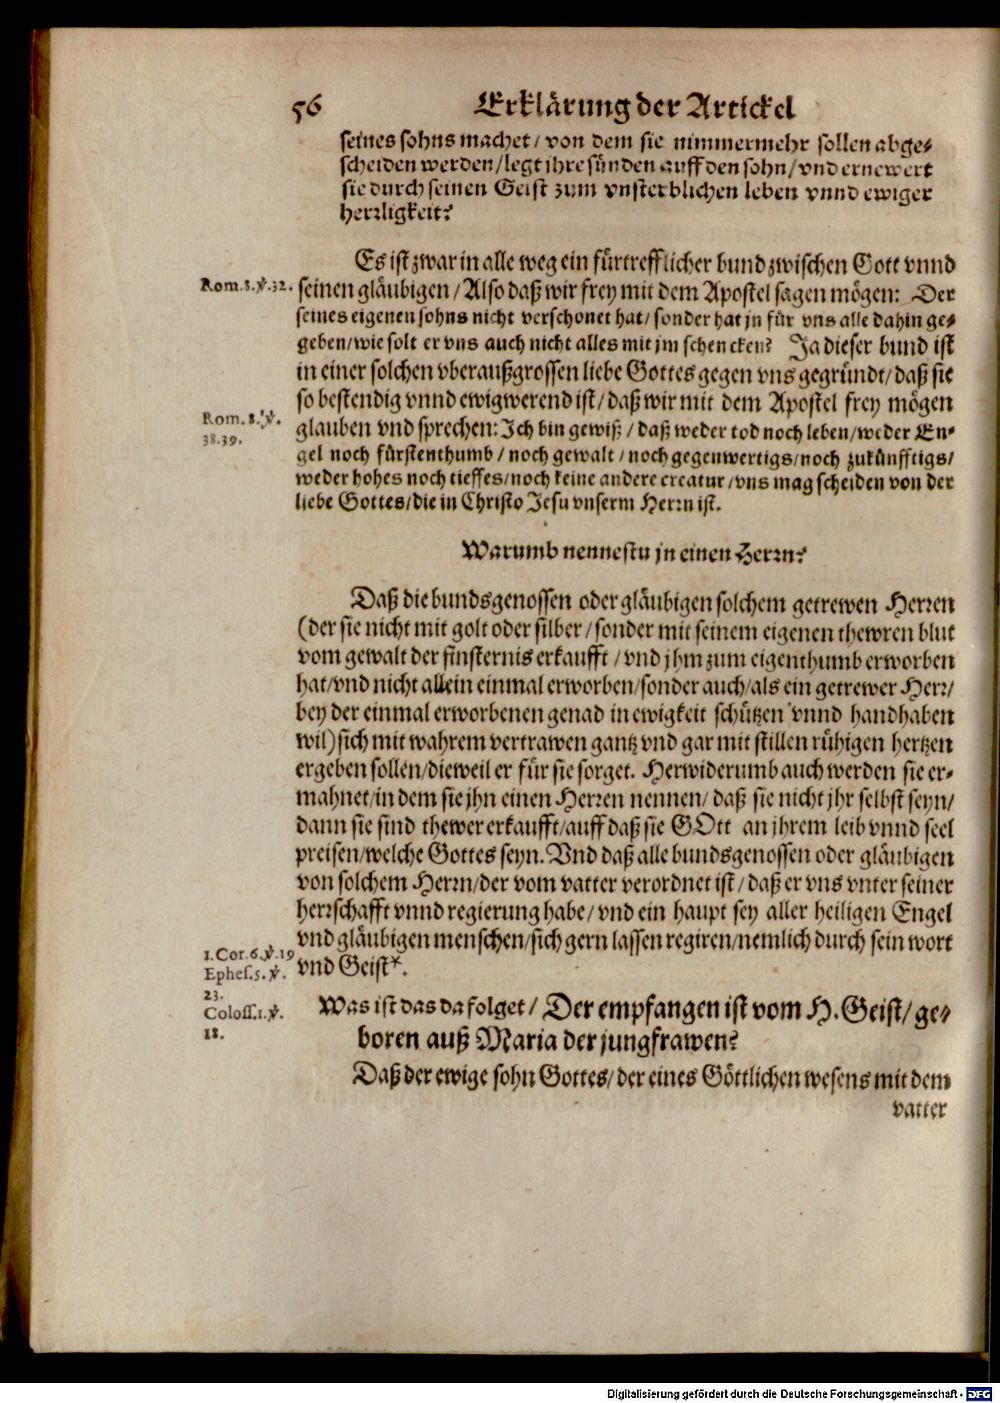 56 Erklärung der Artickel
seines sohns machet/ von dem sie nimmermehr sollen abge-
scheiden werden/ legt ihre sünden auff den sohn/ vnd ernewert
sie durch seinen Geist zum vnsterblichen leben vnnd ewiger
herrligkeit?
Es ist zwar in alle weg ein fürtrefflicher bund zwischen Gott vnnd
Rom. 8. v. 32.
seinen gläubigen/ Also daß wir frey mit dem Apostel sagen mögen: Der
seines eigenen sohns nicht verschonet hat/ sonder hat jn für vns alle dahin ge-
geben/ wie solt er vns auch nicht alles mit jm schencken? Ja dieser bund ist
in einer solchen vberaußgrossen liebe Gottes gegen vns gegründt/ daß sie
so bestendig vnnd ewigwerend ist/ daß wir mit dem Apostel frey mögen
Rom. 8. v.
38. 39.
glauben vnd sprechen: Ich bin gewiß/ daß weder tod noch leben/ weder En-
gel noch fürstenthumb/ noch gewalt/ noch gegenwertigs/ noch zukünfftigs/
weder hohes noch tieffes/ noch keine andere creatur/ vns mag scheiden von der
liebe Gottes/ die in Christo Jesu vnserm Herrn ist.
Warumb nennestu jn einen Herrn?
Daß die bundsgenossen oder gläubigen solchem getrewen Herren
(der sie nicht mit golt oder silber/ sonder mit seinem eigenen thewren blut
vom gewalt der finsternis erkaufft/ vnd jhm zum eigenthumb erworben
hat/ vnd nicht allein einmal erworben/ sonder auch/ als ein getrewer Herr/
bey der einmal erworbenen genad in ewigkeit schützen vnnd handhaben
wil) sich mit wahrem vertrawen gantz vnd gar mit stillen rühigen hertzen
ergeben sollen/ dieweil er für sie sorget. Herwiderumb auch werden sie er-
mahnet/ in dem sie jhn einen Herren nennen/ daß sie nicht jhr selbst seyn/
dann sie sind thewer erkaufft/ auff daß sie GOtt an jhrem leib vnnd seel
preisen/ welche Gottes seyn. Vnd daß alle bundsgenossen oder gläubigen
von solchem Herrn/ der vom vatter verordnet ist/ daß er vns vnter seiner
herrschafft vnnd regierung habe/ vnd ein haupt sey aller heiligen Engel
vnd gläubigen menschen/ sich gern lassen regiren/ nemlich durch sein wort
1. Cor. 6. v. 19
Ephes. 5. v.
23.
Coloss. 1. v.
18.
vnd Geist*.
Was ist das da folget/ Der empfangen ist vom H. Geist/ ge-
boren auß Maria der jungfrawen?
Daß der ewige sohn Gottes/ der eines Göttlichen wesens mit dem
vatter
Digitalisierung gefördert durch die Deutsche Forschungsgemeinschaft - DFG